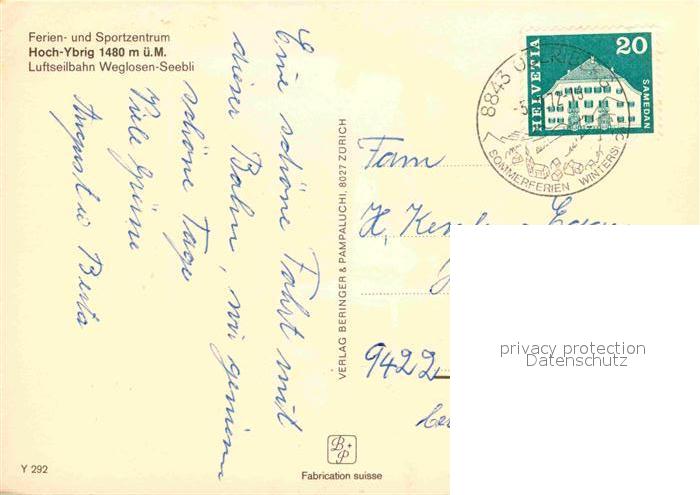 Ferien- und Sportzentrum
Hoch-Ybrig 1480 m ü.M.
Luftseilbahn Weglosen-Seebli
Eine schöne Fahrt mit
dieser Bahn, wir geniessen
schöne Tage
Viele Grüsse
August u Berta
VERLAG BERINGER & PAMPALUCHI, 8027 ZÜRICH
HELVETIA
20
SAMEDAN
8843
SOMMERFERIEN
Fam
H,
9422
privacy protection
Datenschutz
B + P
Y 292
Fabrication suisse